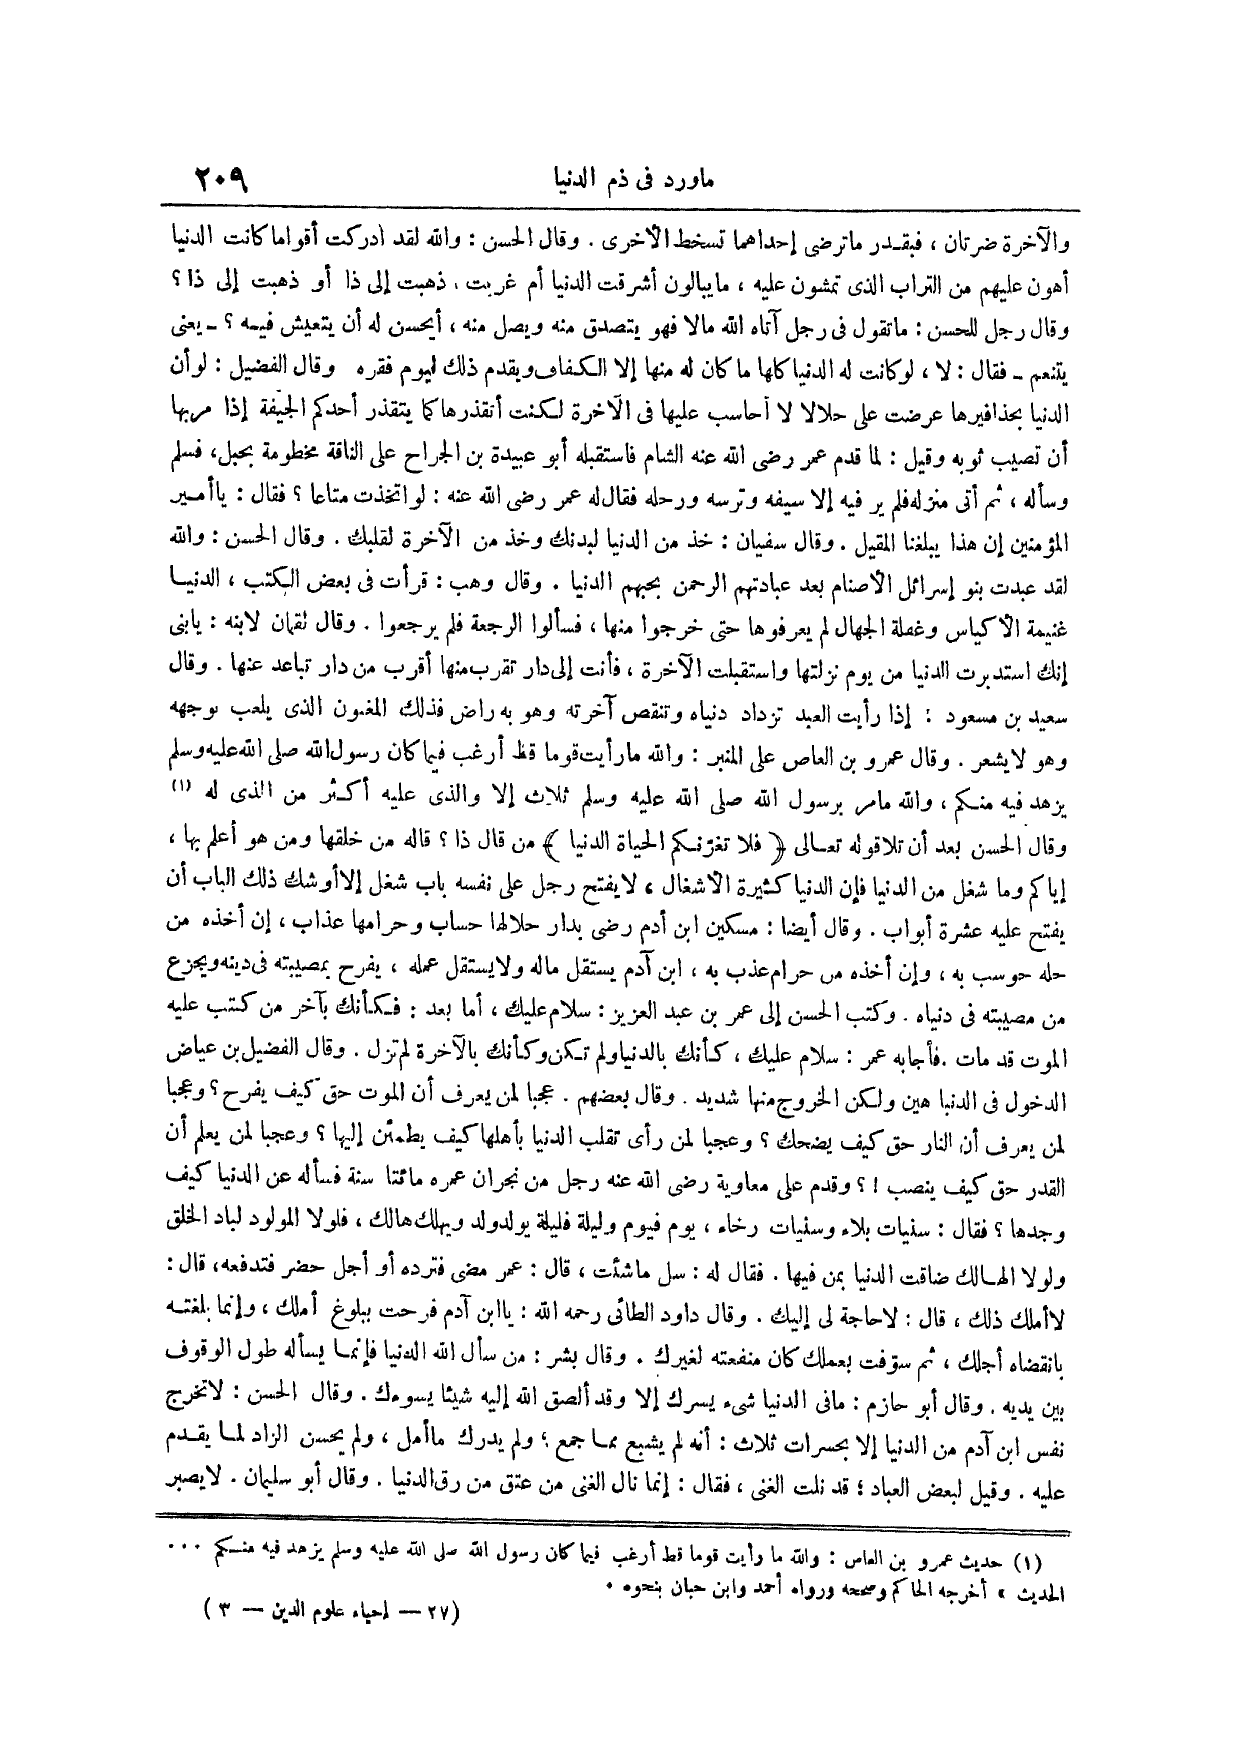 ماورد فى ذم الدنيا ٢٠٩
والآخرة ضرتان ، فبقدر ماترضى إحداهما تسخط الأخرى . وقال الحسن : والله لقد ادركت أقواما كانت الدنيا
أهون عليهم من التراب الذى تمشون عليه ، مايبالون أشرقت الدنيا أم غربت ، ذهبت إلى ذا أو ذهبت إلى ذا ؟
وقال رجل للحسن : ماتقول فى رجل آتاه الله مالا فهو يتصدق منه ويصل منه ، أيحسن له أن يتعيش فيه ؟ ـ يعنى
يتنعم ـ فقال : لا ، لوكانت له الدنيا كلها ما كان له منها إلا الكفاف ويقدم ذلك ليوم فقره وقال الفضيل : لوأن
الدنيا بحذافيرها عرضت على حلالا لا أحاسب عليها فى الآخرة لكنت أتقذرها كما يتقذر أحدكم الجيفة إذا مربها
أن تصيب ثوبه وقيل : لما قدم عمر رضى الله عنه الشام فاستقبله أبو عبيدة بن الجراح على الناقة مخطومة بحبل، فسلم
وسأله ، ثم أتى منزله فلم ير فيه إلا سيفه وترسه ورحله فقال له عمر رضى الله عنه : لو اتخذت متاعا ؟ فقال : ياأمير
المؤمنين إن هذا يبلغنا المقيل . وقال سفيان : خذ من الدنيا لبدنك وخذ من الآخرة لقلبك . وقال الحسن : والله
لقد عبدت بنو إسرائل الأصنام بعد عبادتهم الرحمن بحبهم الدنيا . وقال وهب : قرأت فى بعض الكتب ، الدنيا
غنيمة الأكياس وغفلة الجهال لم يعرفوها حتى خرجوا منها ، فسألوا الرجعة فلم يرجعوا . وقال لقمان لابنه : يابنى
إنك استدبرت الدنيا من يوم نزلتها واستقبلت الآخرة ، فأنت إلى دار تقرب منها أقرب من دار تباعد عنها . وقال
سعيد بن مسعود : إذا رأيت العبد تزداد دنياه وتنقص آخرته وهو به راض فذلك المغبون الذى يلعب بوجهه
وهو لايشعر . وقال عمرو بن العاص على المنبر : والله مارأيت قوما قط أرغب فيما كان رسول الله صلى الله عليه وسلم
يزهد فيه منكم ، والله مامر برسول الله صلى الله عليه وسلم ثلاث إلا والذى عليه أكثر من الذى له (١)
وقال الحسن بعد أن تلاقوله تعالى ﴿ فلا تغرّنكم الحياة الدنيا ﴾ من قال ذا ؟ قاله من خلقها ومن هو أعلم بها ،
إياكم وما شغل من الدنيا فإن الدنيا كثيرة الأشغال ، لايفتح رجل على نفسه باب شغل إلا أوشك ذلك الباب أن
يفتح عليه عشرة أبواب . وقال أيضا : مسكين ابن أدم رضى بدار حلالها حساب وحرامها عذاب ، إن أخذه من
حله حوسب به ، وإن أخذه من حرام عذب به ، ابن آدم يستقل ماله ولايستقل عمله ، يفرح بمصيبته فى دينه ويجزع
من مصيبته فى دنياه . وكتب الحسن إلى عمر بن عبد العزيز : سلام عليك ، أما بعد : فكأنك بآخر من كتب عليه
الموت قد مات .فأجابه عمر : سلام عليك ، كأنك بالدنيا ولم تكن وكأنك بالآخرة لم تزل . وقال الفضيل بن عياض
الدخول فى الدنيا هين ولكن الخروج منها شديد . وقال بعضهم . عجبا لمن يعرف أن الموت حق كيف يفرح ؟ وعجبا
لمن يعرف أن النار حق كيف يضحك ؟ وعجبا لمن رأى تقلب الدنيا بأهلها كيف يطمئن إليها ؟ وعجبا لمن يعلم أن
القدر حق كيف ينصب ! ؟ وقدم على معاوية رضى الله عنه رجل من نجران عمره مائتا سنة فسأله عن الدنيا كيف
وجدها ؟ فقال : سنيات بلاء وسنيات رخاء ، يوم فيوم وليلة فليلة يولدولد ويهلك هالك ، فلولا المولود لباد الخلق
ولولا الهالك ضاقت الدنيا بمن فيها . فقال له : سل ماشئت ، قال : عمر مضى فترده أو أجل حضر فتدفعه، قال :
لاأملك ذلك ، قال : لاحاجة لى إليك . وقال داود الطائى رحمه الله : ياابن آدم فرحت ببلوغ أملك ، وإنما بلغته
بانقضاء أجلك ، ثم سوّفت بعملك كان منفعته لغيرك . وقال بشر : من سأل الله الدنيا فإنما يسأله طول الوقوف
بين يديه . وقال أبو حازم : مافى الدنيا شىء يسرك إلا وقد ألصق الله إليه شيئا يسوءك . وقال الحسن : لاتخرج
نفس ابن آدم من الدنيا إلا بحسرات ثلاث : أنه لم يشبع مما جمع ؛ ولم يدرك ماأمل ، ولم يحسن الزاد لما يقدم
عليه . وقيل لبعض العباد ؛ قد نلت الغنى ، فقال : إنما نال الغنى من عتق من رق الدنيا . وقال أبو سليمان . لايصبر
(١) حديث عمرو بن العاس : والله ما رأيت قوما قط أرغب فيما كان رسول الله صلى الله عليه وسلم يزهد فيه منكم ...
الحديث » أخرجه الحاكم وصححه ورواه أحمد وابن حبان بنحوه .
(٢٧ — إحياء علوم الدين — ٣ )